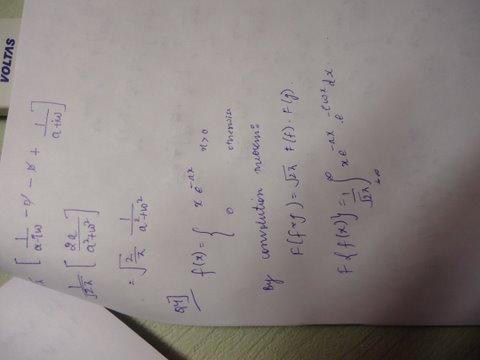 VOLTAS
[ 1/(a-iω) - 0 - 0 + 1/(a+iω) ]
1/√2π [ 2a/(a²+ω²) ]
= √(2/π) a/(a²+ω²)
Q4]
f(x) = { x e^{-ax} x>0
0 otherwise
By convolution theorem:
F(f*g) = √2π F(f) . F(g).
F{f(x)} = 1/√2π ∫ x e^{-ax} . e^{-iωx} dx